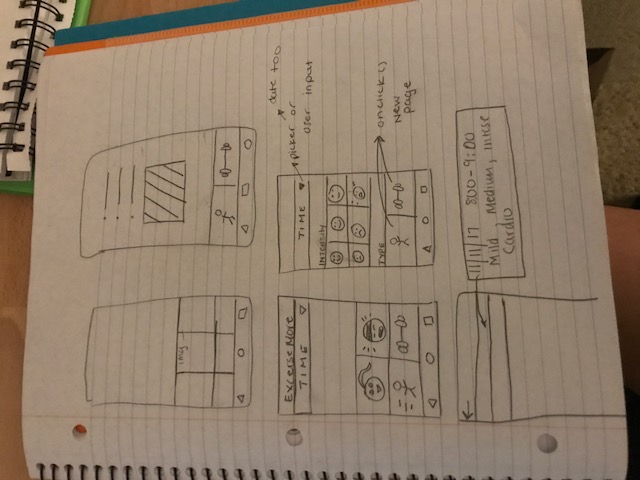 img
Excerse More
TIME
TIME
date too
picker or
user input
INTENSITY
TYPE
onclick()
New
page
11/11/17 800-9:00
Mild, Medium, intese
Cardio